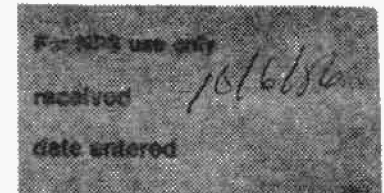 For NPS use only
received 10/6/86
date entered